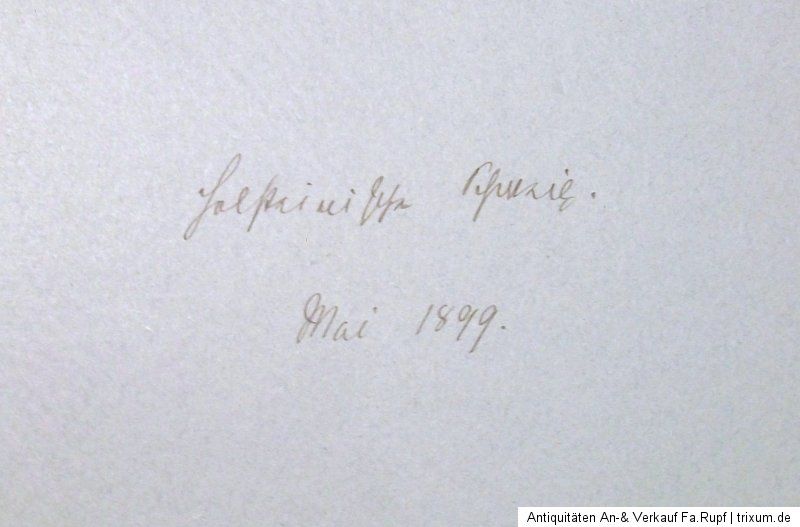 Holsteinische Schweiz.
Mai 1899.
Antiquitäten An-& Verkauf Fa.Rupf | trixum.de